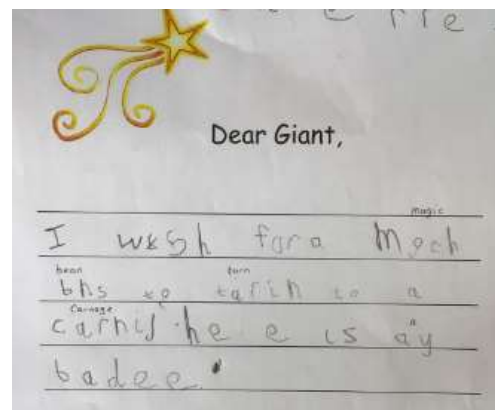 Dear Giant,
magic
I wish for a moch
bean turn
bns to tarin to a
Carnage a
carnij. he e is ay
badee.